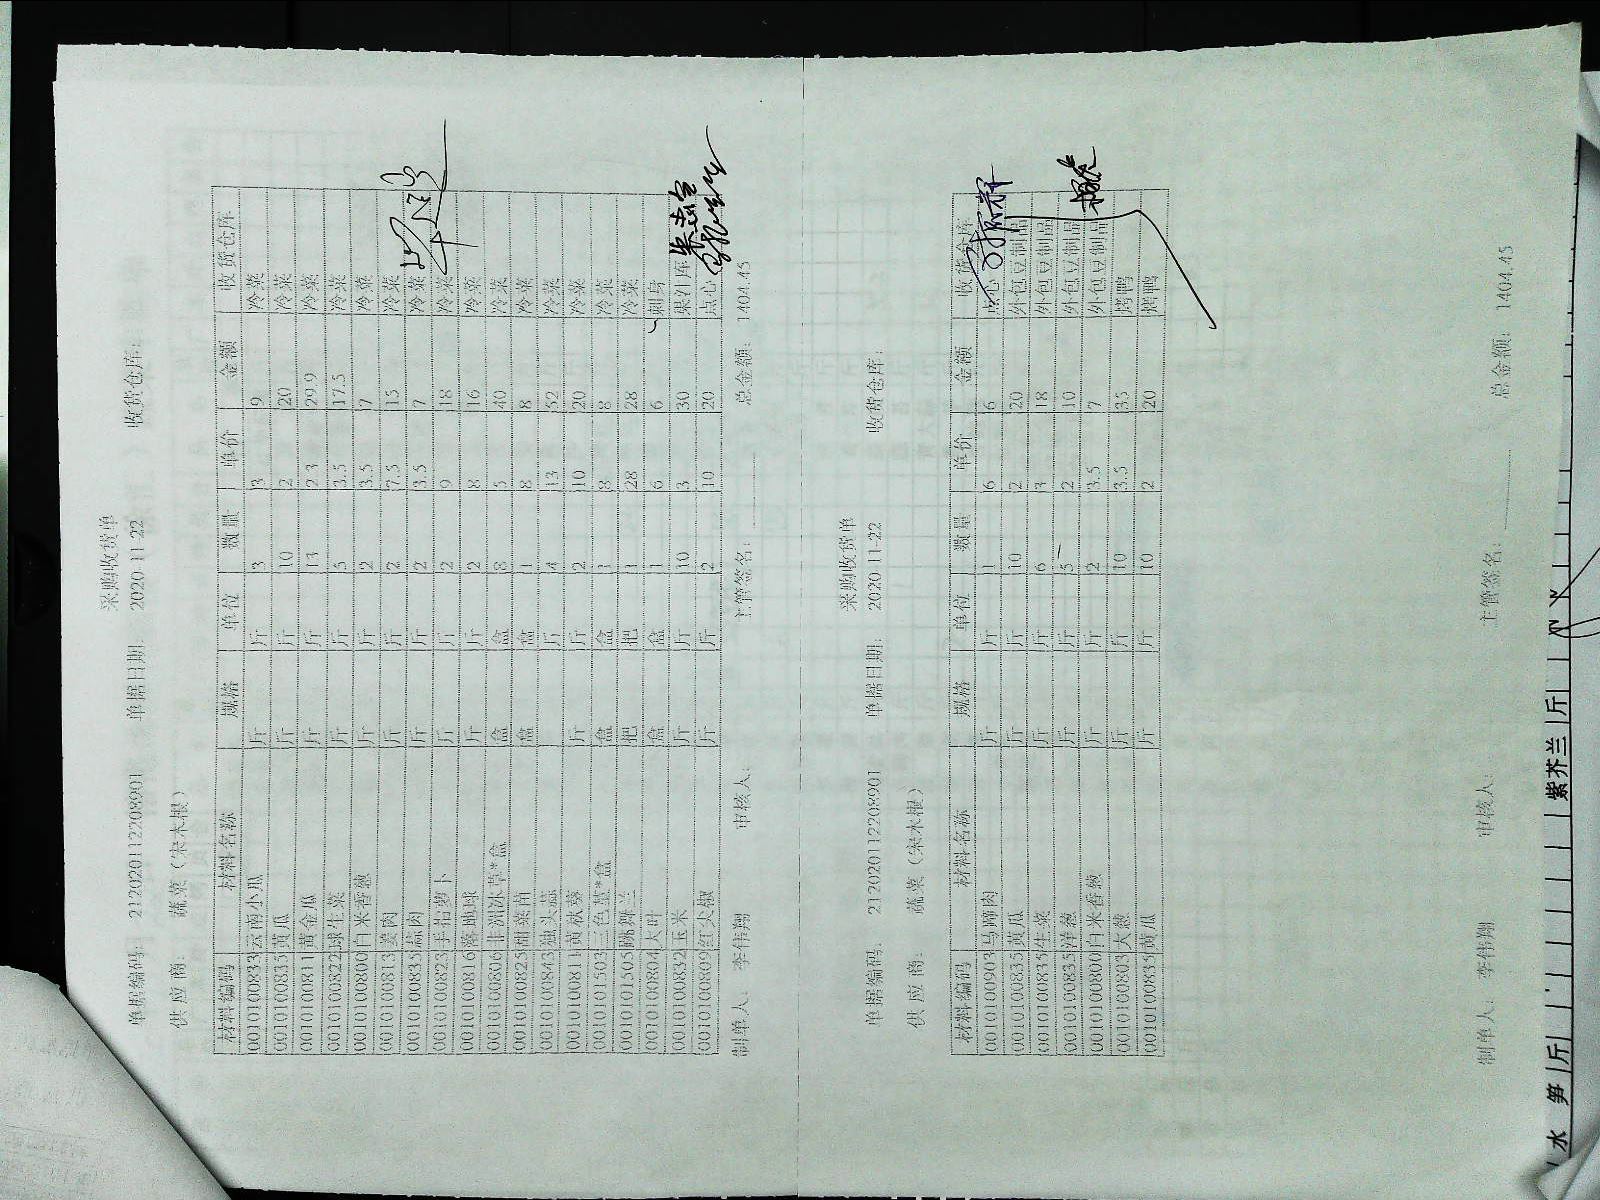 采购收货单
单据编码: 212020112208901 单据日期: 2020 11 22 收货仓库:
供 应 商: 蔬菜（宋木根）
材料编码 材料名称 规格 单位 数量 单价 金额 收货仓库
0010100833 云南小瓜 斤 斤 3 3 9 冷菜
0010100835 黄瓜 斤 斤 10 2 20 冷菜
0010100811 黄金瓜 斤 斤 13 2.3 29.9 冷菜
0010100822 球生菜 斤 斤 5 3.5 17.5 冷菜
0010100800 白米香葱 斤 斤 2 3.5 7 冷菜
0010100813 姜肉 斤 斤 2 7.5 15 冷菜
0010100835 蒜肉 斤 斤 2 3.5 7 冷菜
0010100823 手指萝卜 斤 斤 2 9 18 冷菜
0010100816 落地球 斤 斤 2 8 16 冷菜
0010100806 非洲冰草*盒 盒 盒 8 5 40 冷菜
0010100825 甜菜苗 盒 盒 1 8 8 冷菜
0010100843 独头蒜 斤 4 13 52 冷菜
0010100811 黄秋葵 斤 斤 2 10 20 冷菜
0010101503 三色堇*盒 盒 盒 1 8 8 冷菜
0010101505 跳舞兰 把 把 1 28 28 冷菜
0010100804 大叶 盒 盒 1 6 6 刺身
0010100832 玉米 斤 斤 10 3 30 果外库
0010100809 红尖椒 斤 斤 2 10 20 点心
制单人: 李伟翔 审核人: 主管签名: 总金额: 1404.45
采购收货单
单据编码: 212020112208901 单据日期: 2020 11-22 收货仓库:
供 应 商: 蔬菜（宋木根）
材料编码 材料名称 规格 单位 数量 单价 金额 收货仓库
0010100903 马蹄肉 斤 斤 1 6 6 点心
0010100835 黄瓜 斤 斤 10 2 20 外包豆制品
0010100835 生菜 斤 斤 6 3 18 外包豆制品
0010100835 洋葱 斤 斤 5 2 10 外包豆制品
0010100800 白米香葱 斤 斤 2 3.5 7 外包豆制品
0010100803 大葱 斤 斤 10 3.5 35 烤鸭
0010100835 黄瓜 斤 斤 10 2 20 烤鸭
制单人: 李伟翔 审核人: 主管签名: 总金额: 1404.45
水 笋 斤 紫芥兰 斤